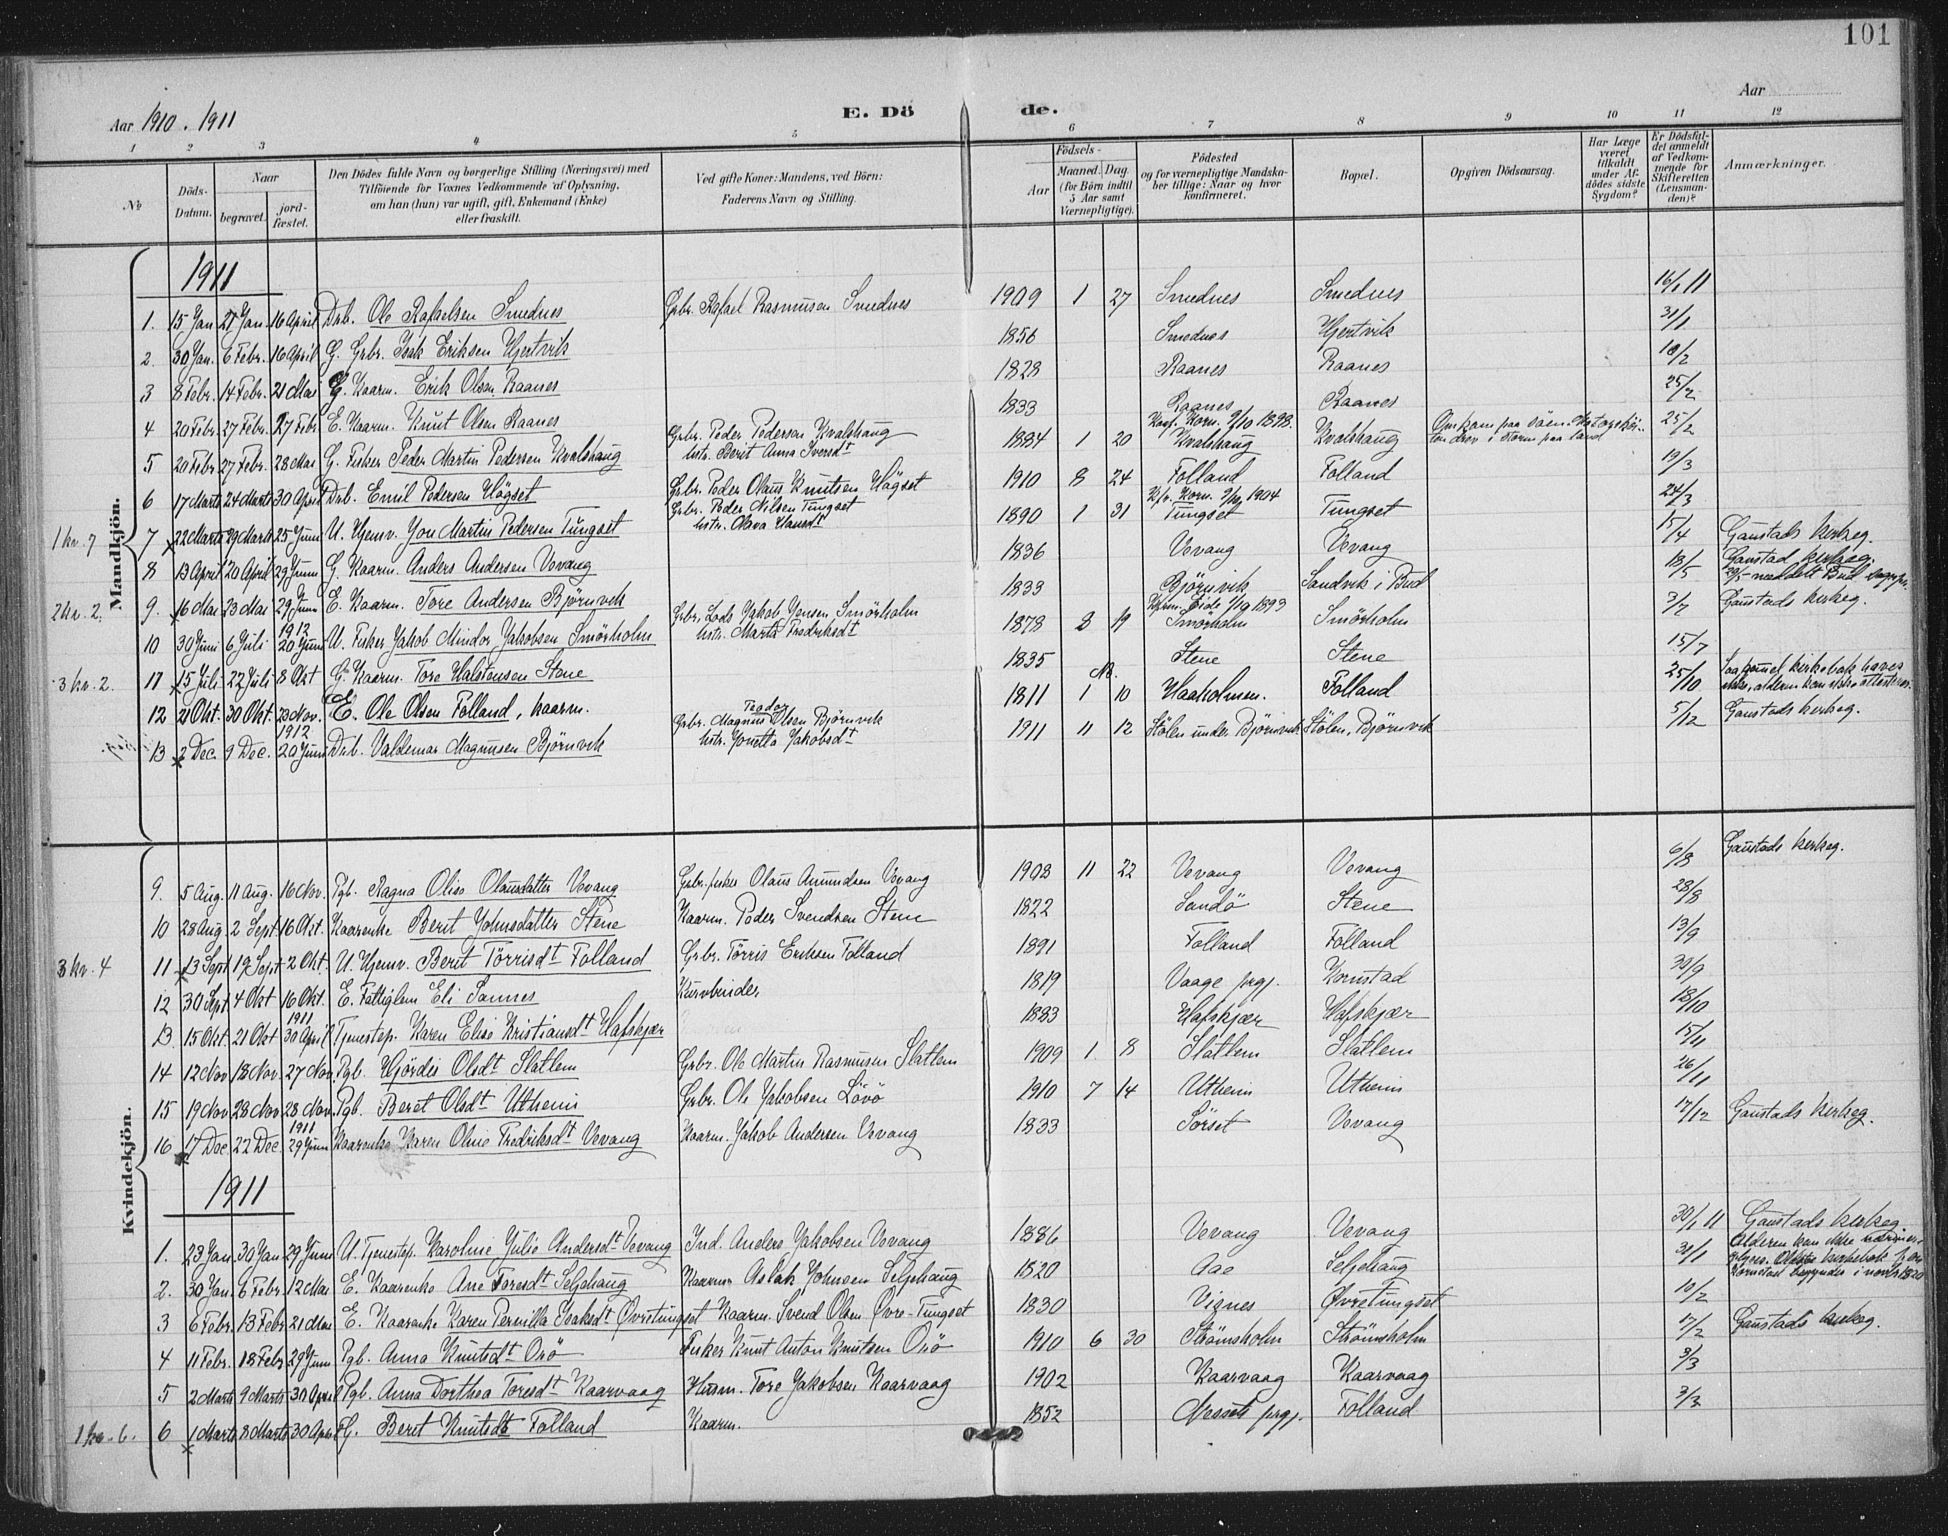 101
Aar 1910 . 1911
E. Dö de.
Aar
1 2 3 4 5 6 7 8 9 10 11 12
No
Döds-Datum.
Naar
begravet.
jord-fæstet.
Den Dödes fulde Navn og borgerlige Stilling (Næringsvei) med
Tilföiende for Voxnes Vedkommende af Oplysning,
om han (hun) var ugift, gift, Enkemand (Enke)
eller fraskilt.
Ved gifte Koner: Mandens, ved Börn:
Faderens Navn og Stilling.
Födsels-
Aar
Maaned. Dag.
(for Börn indtil
5 Aar samt
Værnepligtige).
Födested
og for værnepligtige Mandska-
ber tillige: Naar og hvor
konfirmeret.
Bopæl.
Opgiven Dödsaarsag.
Har Læge
været
tilkaldt
under Af-
dödes sidste
Sygdom?
Er Dödsfal-
det anmeldt
af Vedkom-
mende for
Skifteretten
(Lensman-
den)?
Anmærkninger.
Mandkjön.
1911
1. 15 Jan 27 Jan 16 April Drb. Ole Rafaelsen Smednes Grbr. Rafael Rasmusen Smednes 1909 1 27 Smednes Smednes 16/1 11
2. 30 Jan. 6 Febr. 16 April G. Grbr. Isak Eriksen Hjertvik 1856 Smednes Hjertvik 31/1
3 8 Febr. 14 Febr. 21 Mai G. Kaarm. Erik Olsen Raanes 1828 Raanes Raanes 10/2
4 20 Febr. 27 Febr. 27 Febr E. Kaarm. Knut Olsen Raanes 1833 Raanes Raanes 25/2
5 20 Febr 27 Febr. 28 Mai G. Fisker Peder Martin Pedersen Kvalshaug Grbr. Peder Pedersen Kvalshaug hstr. Berit Anna Iversdt 1884 1 20 Konf. Korn. 9/10 1898. Kvalshaug Kvalshaug Omkom paa söen. i storm paa land 25/2
6 17 Marts 24 Marts 30 April Drb. Emil Pedersen Högset Grbr. Peder Olaus Knutsen Högset 1910 8 24 Folland Folland 19/3
1 kv. 7
7 22 Marts 29 Marts 25 Juni U. Hjemv. Jon Martin Pedersen Tungset Grbr. Peder Nilsen Tungset hstr. Olava Hansdt 1890 1 31 Kfr. Korn. 9/10 1904 Tungset Tungset 24/3
8 13 April 20 April 29 Juni G. Kaarm. Anders Andersen Vevang 1836 Vevang Vevang 15/4 Gaustads kirkeg.
2 kv. 2.
9. 16 Mai 23 Mai 29 Juni E. Kaarm. Tore Andersen Björnvik 1833 Björnvik Sandvik i Bud 18/5 Gaustad kirkeg.
10 30 Juni 6 Juli 1912 20 Juni U. Fisker Jakob Mindor Jakobsen Smörholm Grbr. Lods Jakob Jensen Smörholm hstr. Marta Fredriksdt 1878 8 19 Kfrm. Eide 1/10 1893 Smörholm Smörholm 3/7 Gaustads kirkeg.
3 kv. 2.
11 15 Juli 22 Juli 8 Okt G. Kaarm. Tore Halstensen Stene 1835 Stene Stene 15/7
12 21 Okt. 30 Okt. 23 Nov. E. Ole Olsen Folland, kaarm. 1811 1 10 Haaholmen. Folland 25/10
13 2 Dec. 9 Dec. 1912 20 Juni Drb. Valdemar Magnusen Björnvik Grbr. Magnus Teodor Olsen Björnvik hstr. Jonetta Jakobsdt 1911 11 12 Stölen under Björnvik Stölen, Björnvik 5/12 Gaustads kirkeg.
Kvindekjön.
9. 5 Aug. 11 Aug. 16 Nov. Pgb. Ragna Olise Olausdatter Vevang Grbr. fisker Olaus Amundsen Vevang 1908 11 22 Vevang Vevang 6/8 Gaustads kirkeg.
10 28 Aug. 2 Sept. 16 Okt. Kaarenke Berit Johnsdatter Stene Kaarm. Peder Svendsen Stene 1822 Sandö Stene 28/8
3 kv. 4
11 13 Sept 19 Sept 2 Okt. U. Hjemv. Berit Törrisdt Folland Grbr. Törris Eriksen Folland 1891 Folland Folland 13/9
12 30 Sept 4 Okt 16 Okt. E. Fattiglem Eli Sannes Kurvbinder 1819 Vaage prgj. Kornstad 30/9
13 15 Okt. 21 Okt 1911 30 April Tjenestep. Karen Elise Kristiansdt Hafskjær 1883 Hafskjær Hafskjær 18/10
14 12 Nov 18 Nov 27 Nov. Pgb. Hjördis Olsdt Slatlem Grbr. Ole Martin Rasmusen Slatlem 1909 1 8 Slatlem Slatlem 15/11
15 19 Nov 28 Nov 28 Nov. Pgb. Beret Olsdt Utheim Grbr. Ole Jakobsen Lövö 1910 7 14 Utheim Utheim 26/11
16 17 Dec 22 Dec 1911 29 Juni Kaarenke Karen Oline Fredriksdt Vevang Kaarm. Jakob Andersen Vevang 1833 Sörset Vevang 17/12 Gaustads kirkeg.
1911
1. 23 Jan. 30 Jan 29 Juni U. Tjenestep. Karoline Julie Andersdt Vevang Ind. Anders Jakobsen Vevang 1886 Vevang Vevang 30/1 11 Gaustads kirkeg.
2. 30 Jan. 6 Febr. 12 Mai E. Kaarenke Ane Toresdt Seljehaug Kaarm. Aslak Johnsen Seljehaug 1820 Aae Seljehaug 31/1 Alderen kan ikke
3 6 Febr. 13 Febr 21 Mai E. Kaarenke Karen Pernilla Isaksdt Övretungset Kaarm. Svend Olsen Övre-Tungset 1830 Visnes Övretungset 10/2
4 11 Febr. 18 Febr 29 Juni Pgb. Anna Knutsdt Orö Fisker Knut Anton Knutsen Orö 1910 6 30 Strömsholm Strömsholm 17/2 Gaustads kirkeg.
5 2 Marts 9 Marts 30 April Pgb. Anna Dorthea Toresdt Kaarvaag Husm. Tore Jakobsen Kaarvaag 1902 Kaarvaag Kaarvaag 3/3
1 kv. 6.
6 1 Marts 8 Marts 30 April G. Beret Knutsdt Folland Kaarm. 1852 Nesset prgj. Folland 3/3